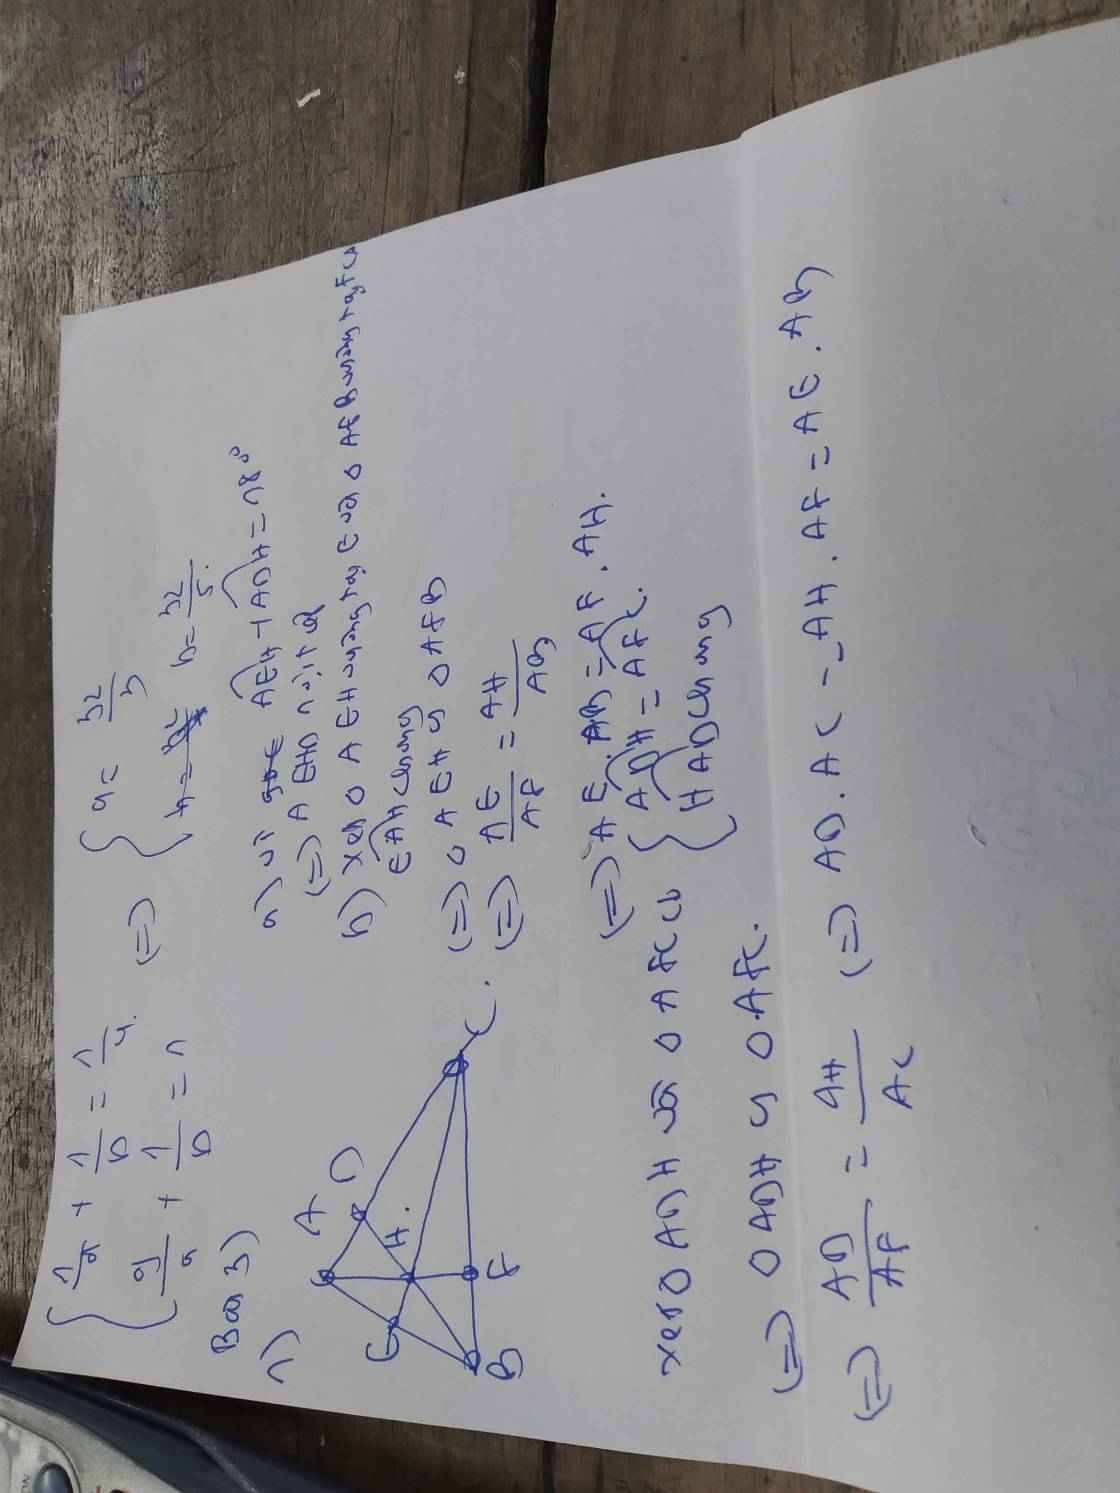 { 1/a + 1/b = 1/4. <=> { a = 32/3
{ 9/a + 1/b = 1 b = 32/5.
Bài 3)
1)
A
D
H.
E
C.
B
F
a) vì AEH + ADH = 180
<=> AEHD nội tiếp
b) xét △ AEH vuông tại E và △ AFB vuông tại F có
EAH chung
<=> △ AEH ∽ △ AFB
<=> AE/AF = AH/AB
<=> AE. AB = AF. AH.
xét △ ADH và △ AFC có { ADH = AFC.
{ HAD chung
<=> △ ADH ∽ △ AFC.
<=> AD/AF = AH/AC <=> AD. AC = AH. AF = AE. AB